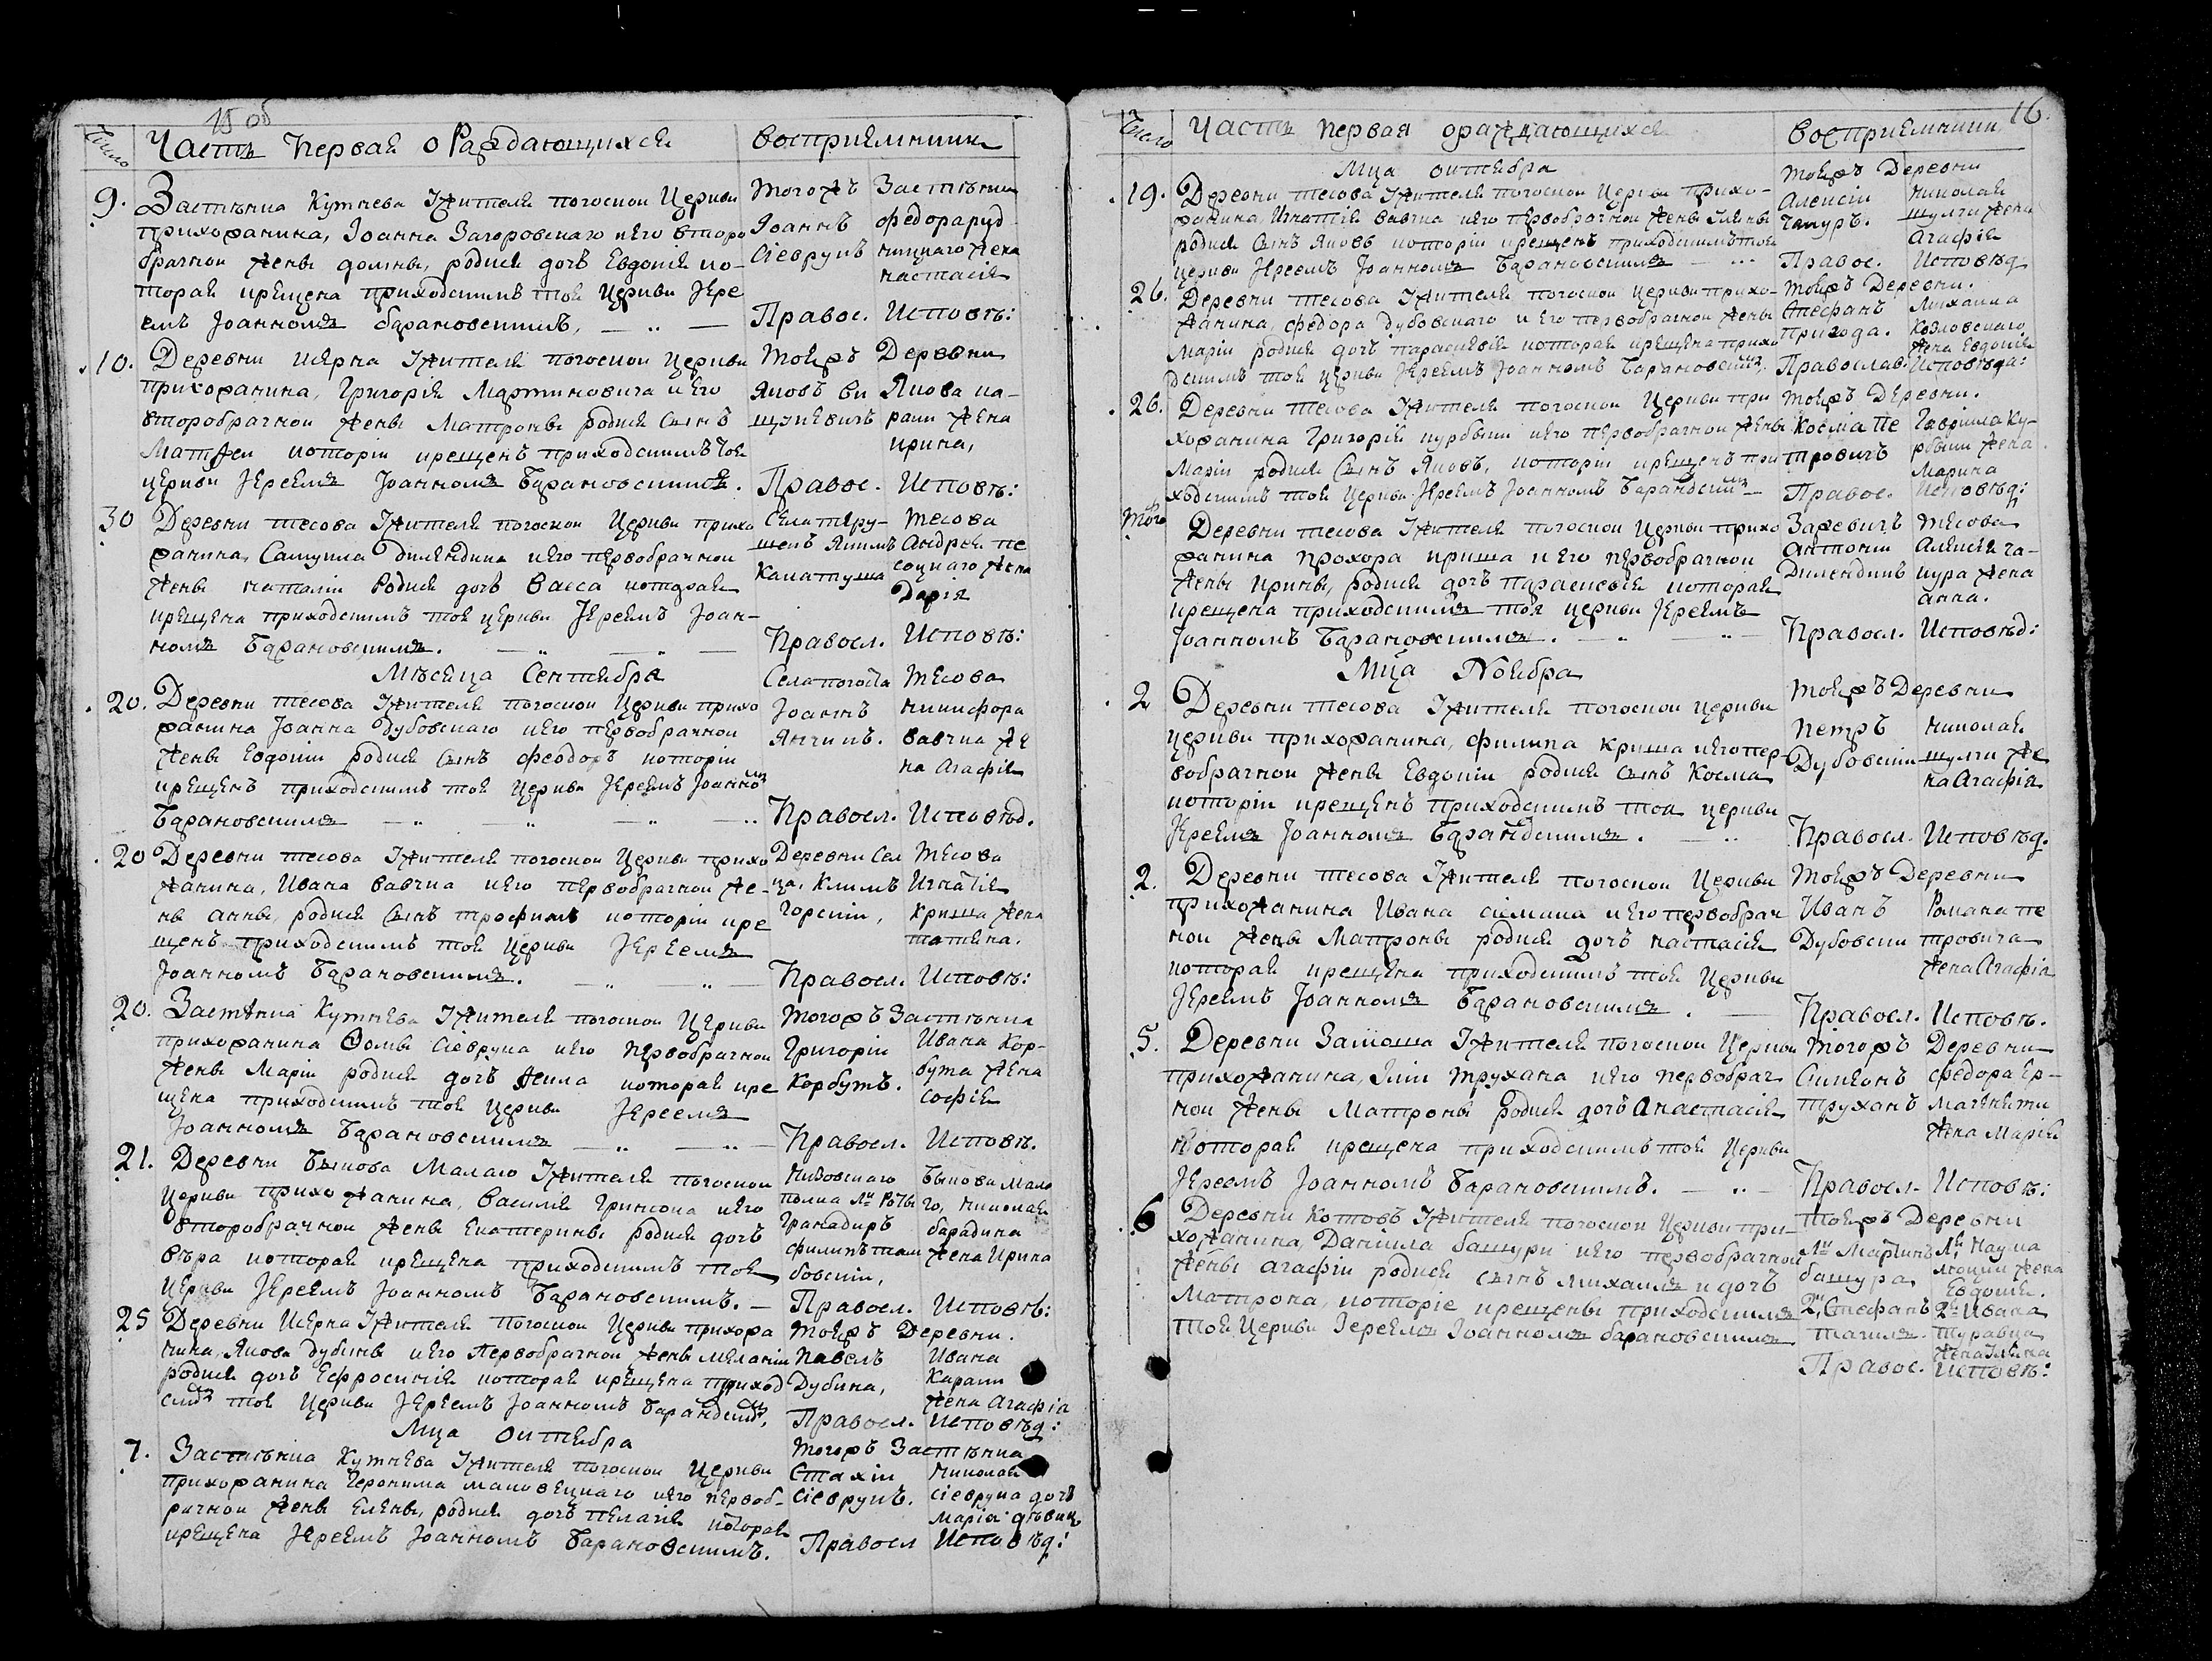 15 об
Число
Часть Первая о Раждающихся
восприемники
9.
Застѣнка Кутнева Жителя погоской Церкви
прихожанина, Іоанна Загоровскаго и его второ
брачной жены домны, родися дочъ Евдокія ко-
торая крещена приходскимъ тоя Церкви Іере
емъ Іоанномъ барановскимъ.
тогожъ Застѣнка
Іоаннъ
Сіеврукъ
федора руд
ницкаго Жена
настасія
Правос. Исповѣ:
10.
Деревни искрна Жителя погоской Церкви
прихожанина, Григорія Мартиновича и его
второбрачной жены Матроны родися сынъ
Матфеи которіи крещенъ приходскимъ тоя
церкви Іереемъ Іоанномъ Барановскимъ.
тояжъ Деревни
Яковъ ви
щукевичъ
Якова ка-
раки жена
ирина,
Правос. Исповѣ:
30
Деревни тесова Жителя погоской Церкви прихо
жанина, Самуила дилендика и его первобрачной
жены наталіи Родися дочъ васса которая
крещена приходскимъ тоя церкви Іереемъ Іоан-
номъ Барановскимъ.
тесова
Андрея пе
соцкаго жена
Дарія
Правосл. Исповѣ:
Мѣсяца Сентября
20.
Деревни тесова Жителя погоской Церкви прихо
жанина Іоанна Дубовскаго и его первобрачной
жены Евдокіи родися сынъ феодоръ которіи
крещенъ приходскимъ тоя Церкви Іереемъ Іоанномъ
Барановскимъ
Села погоста
Іоаннъ
Янчикъ.
Тесова
никифора
вавчка же
на Агафія
Правосл. Исповѣд.
20
Деревни тесова Жителя погоской Церкви прихо
жанина, Ивана вавчка и его первобрачной же-
ны анны, родися сынъ трофимъ которіи кре
щенъ приходскимъ тоя Церкви Іереемъ
Іоанномъ Барановскимъ.
Деревни Сел
ца, Климъ
Горскіи,
Тесова
Игнатія
криша жена
татіана.
Правосл. Исповѣ:
20.
Застѣнка Кутнева Жителя погоской Церкви
прихожанина Ѳомы Сіеврука и его Первобрачной
жены Маріи родися дочъ Фекла которая кре
щена приходскимъ тоя Церкви Іереемъ
Іоанномъ Барановскимъ
тогожъ Застѣнка
Григоріи
Корбутъ.
Ивана Кор-
бута жена
софія
Правосл. Исповѣ.
21.
Деревни Быкова Малаго Жителя погоской
Церкви прихожанина, Василія Гринюка и его
второбрачной жены Екатерины родися дочъ
вѣра которая крещена приходскимъ тоя
Церкви Іереемъ Іоанномъ Барановскимъ.
Низовскаго
полка
Гранадиръ
филипъ
бовскіи,
Быкова Мала
го, николая
барадина
жена Ирина
Правосл. Исповѣ:
25
Деревни Искрна Жителя погоской Церкви прихожа
нина, Якова дубины и его первобрачной жены меланіи
родися дочъ Ефросинія которая крещена приход
скимъ тоя Церкви Іереемъ Іоанномъ Барановским.
тояжъ Деревни.
Павелъ
Дубина,
Ивана
Караки
жена Агафіа
Правосл. Исповѣд:
Мца октября
7.
Застѣнка Кутнева Жителя погоской Церкви
прихожанина Іеронима маковецкаго и его первоб-
рачной жены Елены, родися дочъ пелагія которая
крещена Іереемъ Іоанномъ Барановскимъ.
тогожъ Застѣнка
Стахіи
Сіеврукъ.
николая
сіеврука дочъ
маріа дѣвица
Правосл Исповѣд:
16.
Число
Часть первая о раждающихся
восприемники
Мца октября
19.
Деревни тесова Жителя погоской Церкви прихо-
жанина, Игнатія вавчка и его первобрачной жены Улияны
родися сынъ Яковъ которіи крещенъ приходскимъ тоя
церкви Іереемъ Іоанномъ Барановскимъ
тояжъ Деревни
Алексіи
Чакуръ.
николая
шулги жена
агафія
Правос. Исповѣд
26.
Деревни тесова Жителя погоской Церкви прихо-
жанина, федора дубовскаго и его первобрачной жены
Маріи родися дочъ параскевія которая крещена прихо
дскимъ тоя церкви Іереемъ Іоанномъ Барановским.
тояжъ Деревни.
Стефанъ
прихода.
Михаила
Козловскаго
жена Евдокія
Православ. Исповѣда:
26.
Деревни тесова Жителя погоской Церкви при
хожанина Григорія курбыки и его первобрачной жены
Маріи родися сынъ Яковъ, которіи крещенъ при
ходскимъ тоя Церкви Іереемъ Іоанномъ Барановским
тояжъ Деревни.
Косма пе
тровичъ
Гавріила Ку-
рбыки жена
Марина
Правос. Исповѣд:
Того
Деревни тесова Жителя погоской Церкви прихо
жанина прохора криша и его первобрачной
жены ирины, родися дочъ параскевія которая
крещена приходскимъ тоя церкви Іереемъ
Іоанномъ Барановскимъ.
Заревичъ
антоніи
Дилендикъ
тесова
Алексія ча-
кура жена
анна.
Правосл. Исповѣд:
Мца Ноября
2
Деревни тесова Жителя погоской Церкви
церкви прихожанина, филипа криша и его пер
вобрачной жены Евдокіи родися сынъ Косма
которіи крещенъ приходскимъ тоя церкви
Іереемъ Іоанномъ Барановскимъ.
тояжъ Деревни
петръ
Дубовскіи
николая
шулги же
на Агафія
Правосл. Исповѣд.
2.
Деревни тесова Жителя погоской Церкви
прихожанина Ивана сіомика и его первобрач
ной жены Матроны родися дочъ настасія
которая крещена приходскимъ тоя Церкви
Іереемъ Іоанномъ Барановскимъ.
тояжъ Деревни
Иванъ
Дубовски
Романа пе
тровича
жена Агафіа
Правосл. Исповѣ.
5.
Деревни Замоша Жителя погоской Церкви
прихожанина, Іліи трухана и его первобрач
ной жены Матроны родися дочъ Анастасія
которая крещена приходскимъ тоя Церкви
Іереемъ Іоанномъ Барановскимъ.
тогожъ Деревни
Симеонъ
труханъ
федора Ер-
жена Марія
Правосл. Исповѣ:
6
Деревни Котовъ Жителя погоской Церкви при-
хожанина, Даніила башури и его первобрачной
жены агафіи родися сынъ михаилъ и дочъ
Матрона, которіе крещены приходскимъ
тоя Церкви Іереемъ Іоанномъ барановскимъ
тояжъ Деревни
Мартинъ
башура
2, Стефанъ
Наума
жена
Евдокія.
2 Ивана
Правос. Исповѣ: